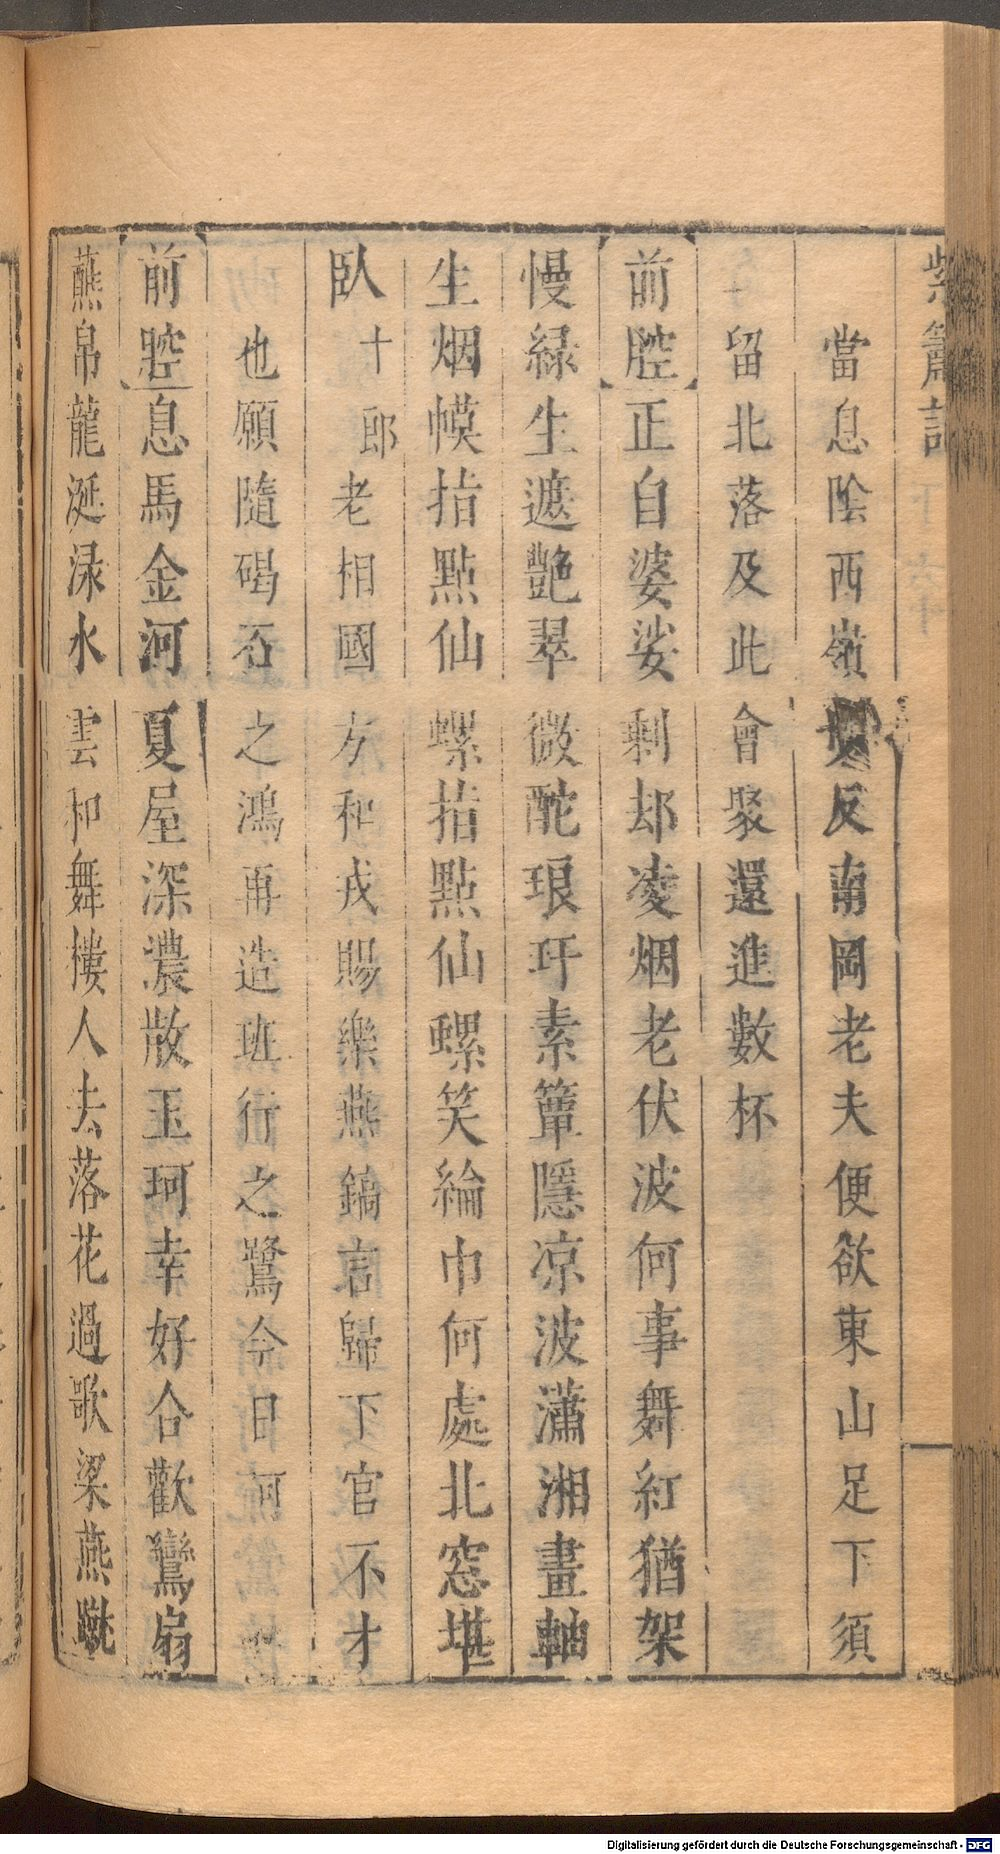 紫簫記 下 六十
當息陰西嶺反南岡老夫便欲東山足下須
留北落及此會聚還進數杯
前腔正自婆娑剩却凌烟老伏波何事舞紅猶架
慢緑生遮艷翠微酡琅玕素簟隱凉波瀟湘畫軸
生烟幙指點仙螺指點仙螺笑綸巾何處北窓堪
臥十郎老相國方和戎賜樂燕鎬言歸下官不才
也願隨碣石之鴻再造班行之鷺今日河
前腔息馬金河夏屋深濃散玉珂幸好合歡鸞扇
蘸帛龍涎渌水雲和舞樓人去落花過歌梁燕蹴
Digitalisierung gefördert durch die Deutsche Forschungsgemeinschaft - DFG